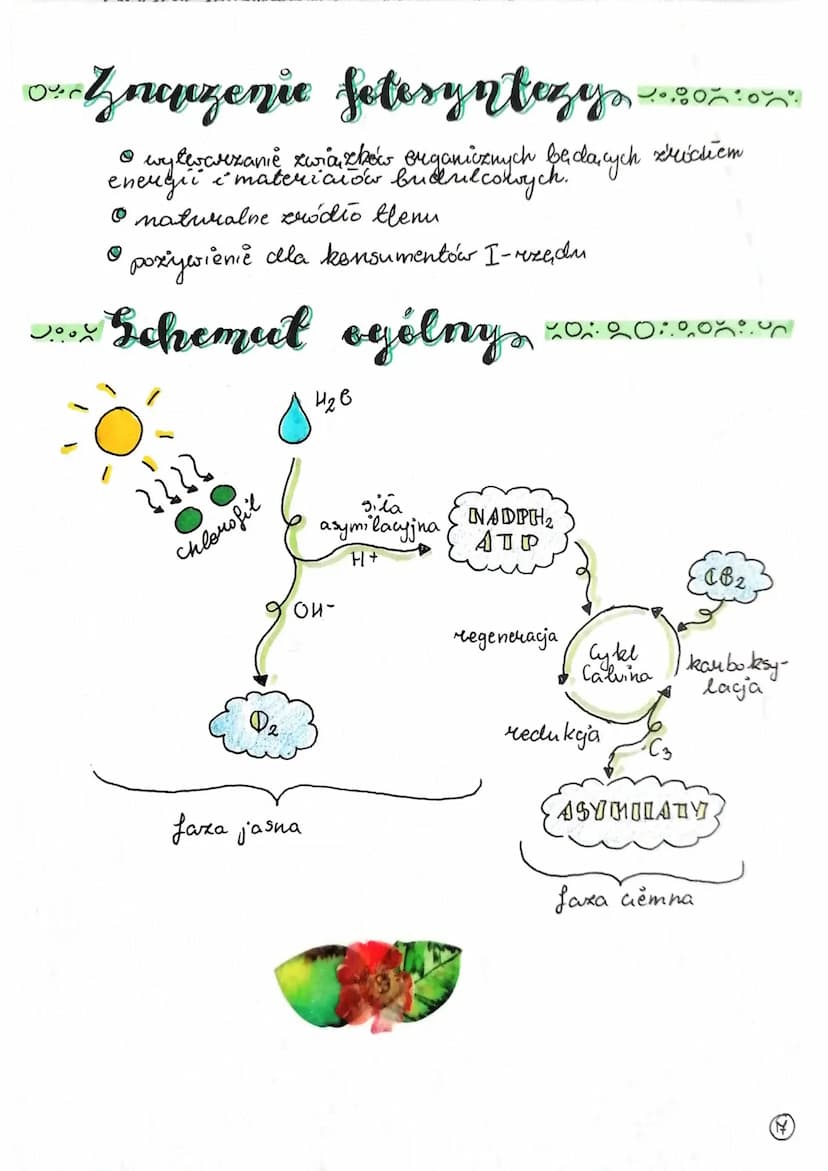 Znaczenie fotosyntezy
wytwarzanie związków organicznych będących źródłem
energii i materiałów budulcowych.
naturalne źródło tlenu
pożywienie dla konsumentów I-rzędu
Schemat ogólny
H₂O
chlorofil
siła
asymilacyjna
H+
NADPH₂
ATP
CO₂
OH⁻
regeneracja
Cykl
Calvina
karboksy-
lacja
O₂
redukcja
C₃
ASYMILATY
faza jasna
faza ciemna
17